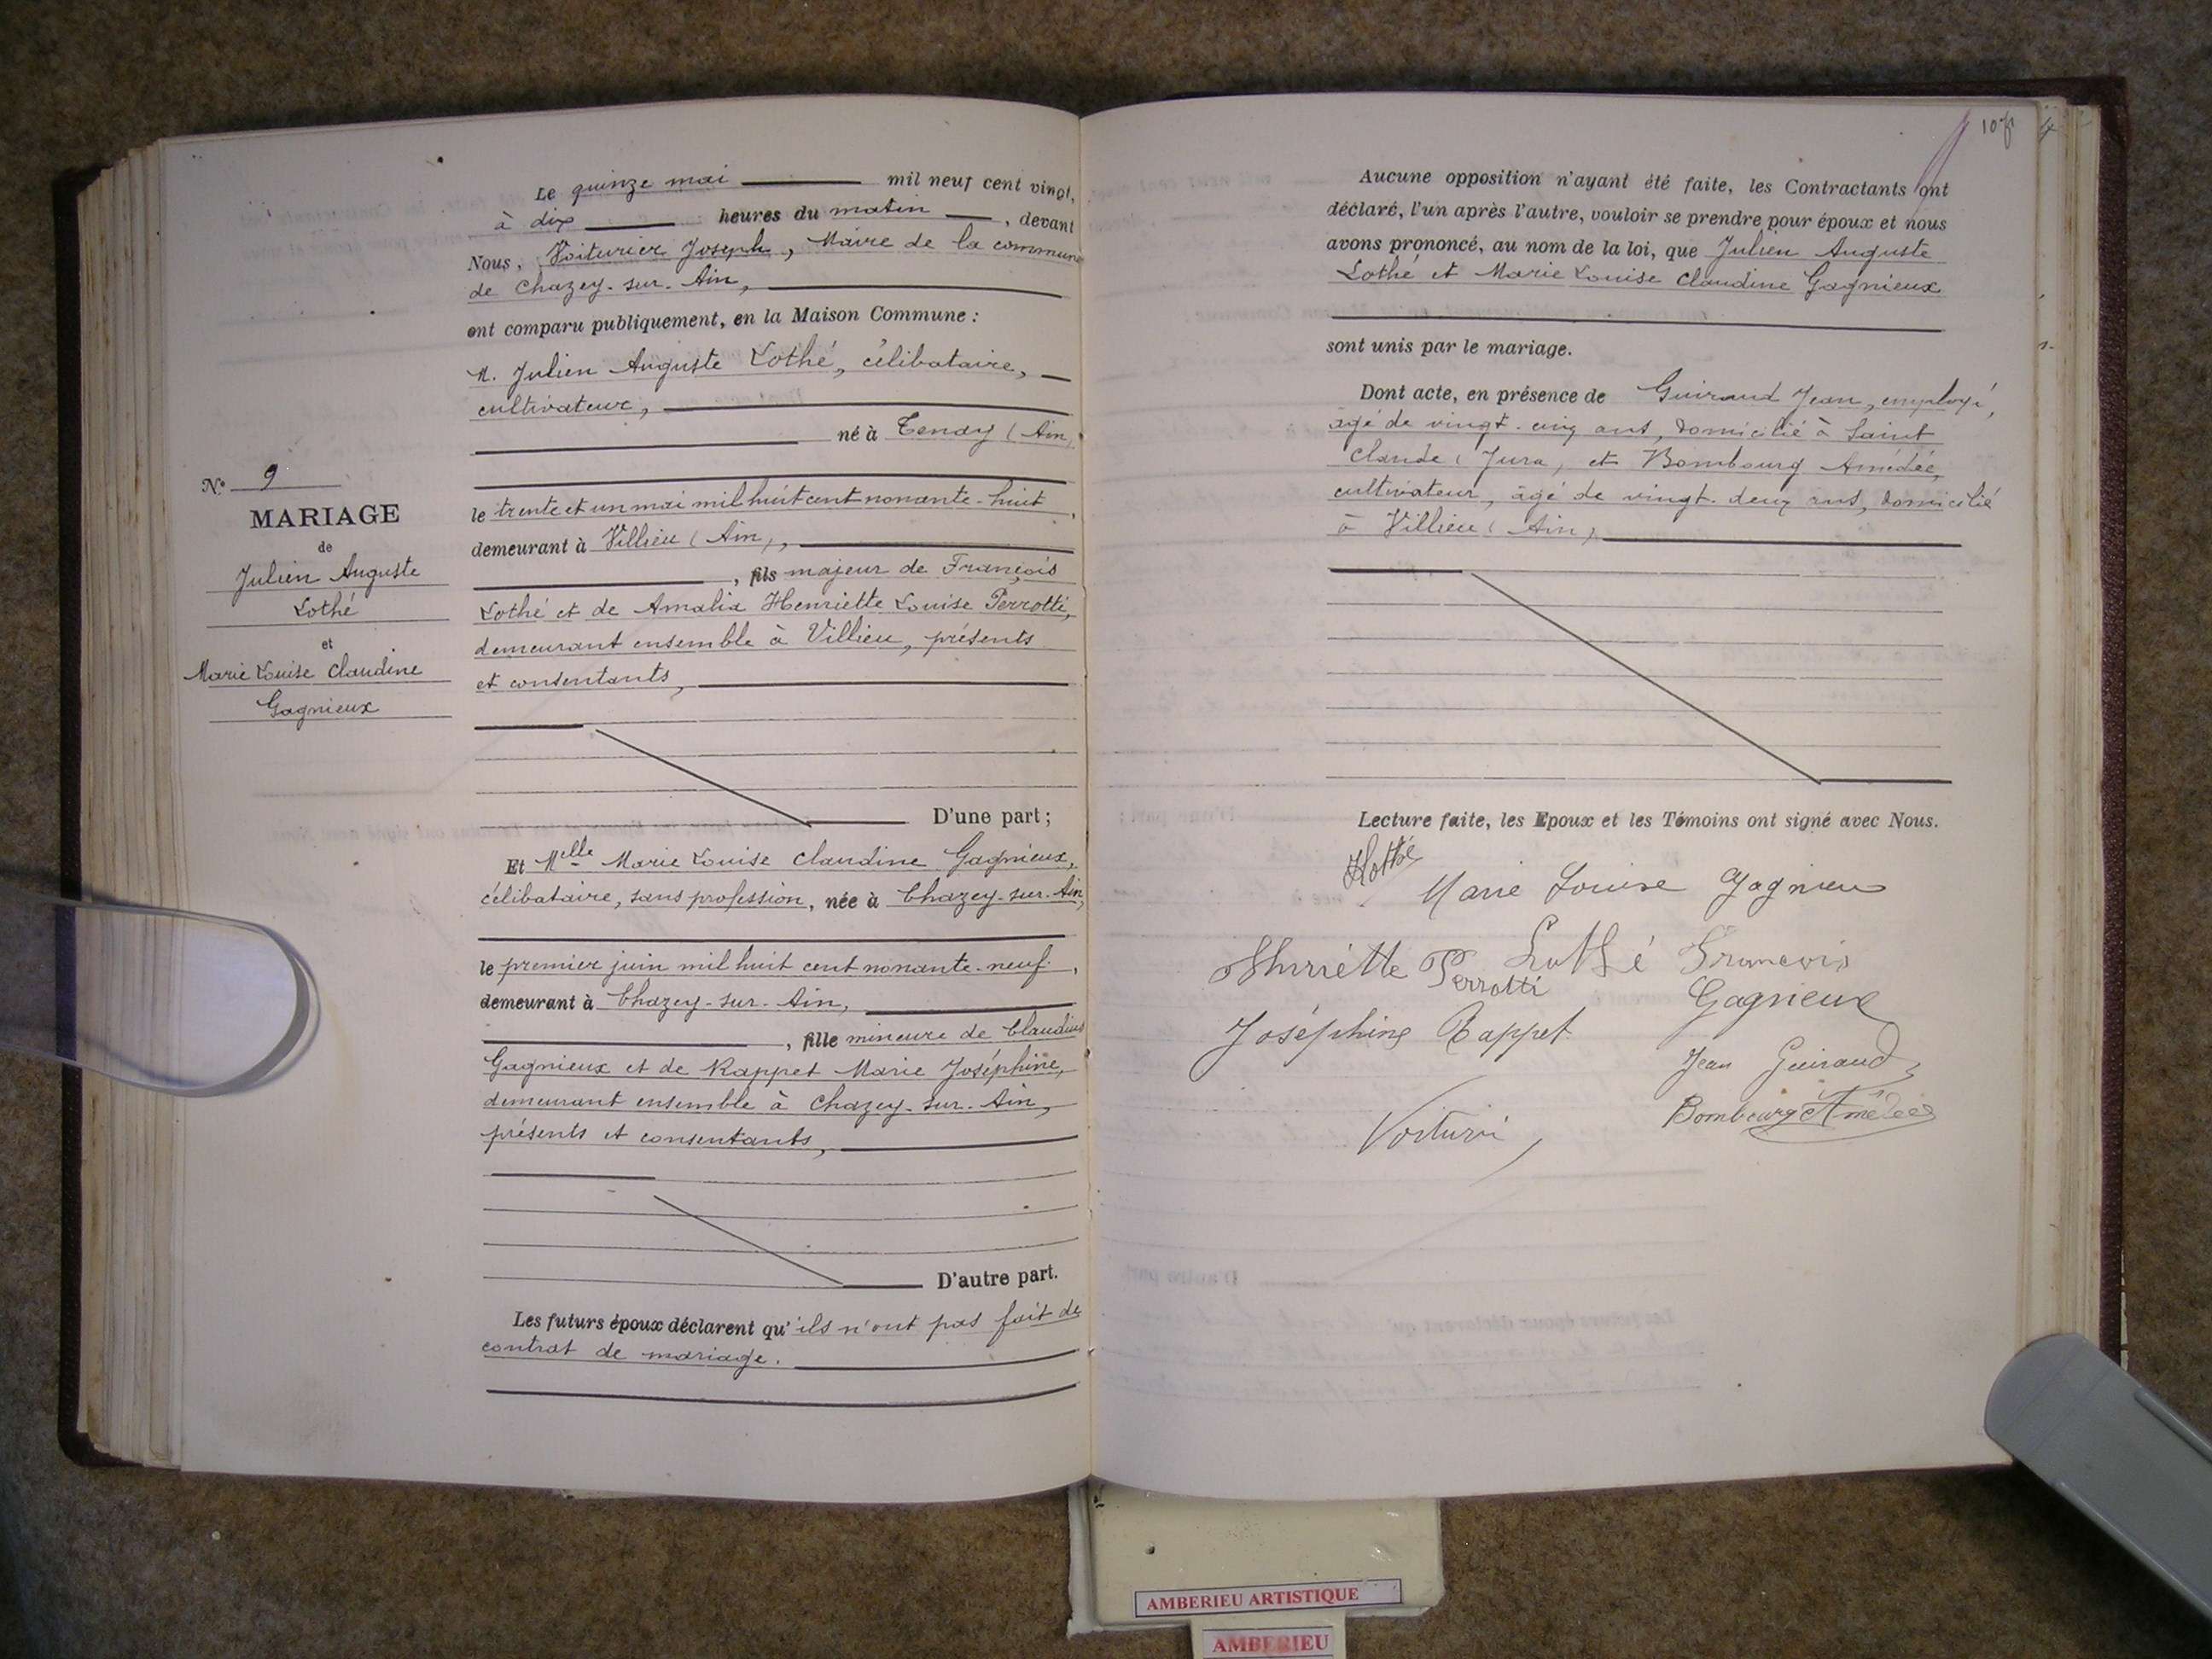 Le quinze mai mil neuf cent vingt,
à dix heures du matin, devant
Nous, Voiturier Joseph, Maire de la commune
de Chazey-sur-Ain,
ont comparu publiquement, en la Maison Commune :
M. Julien Auguste Lothé, célibataire,
cultivateur,
né à Tenay (Ain)
le trente et un mai mil huit cent nonante-huit,
demeurant à Villieu (Ain),
, fils majeur de François
Lothé et de Amalia Henriette Louise Perrotti,
demeurant ensemble à Villieu, présents
et consentants,
D'une part ;
N° 9
MARIAGE
de
Julien Auguste
Lothé
et
Marie Louise Claudine
Gagnieux
Et Melle Marie Louise Claudine Gagnieux,
célibataire, sans profession, née à Chazey-sur-Ain,
le premier juin mil huit cent nonante-neuf,
demeurant à Chazey-sur-Ain,
, fille mineure de Claudius
Gagnieux et de Rappet Marie Joséphine,
demeurant ensemble à Chazey-sur-Ain,
présents et consentants,
D'autre part.
Les futurs époux déclarent qu'ils n'ont pas fait de
contrat de mariage.
Aucune opposition n'ayant été faite, les Contractants ont
déclaré, l'un après l'autre, vouloir se prendre pour époux et nous
avons prononcé, au nom de la loi, que Julien Auguste
Lothé et Marie Louise Claudine Gagnieux
sont unis par le mariage.
Dont acte, en présence de Guiraud Jean, employé,
âgé de vingt-cinq ans, domicilié à Saint
Claude (Jura) et Bombourg Amédée,
cultivateur, âgé de vingt-deux ans, domicilié
à Villieu (Ain)
Lecture faite, les Epoux et les Témoins ont signé avec Nous.
Lothé
Marie Louise Gagnieu
Henriette Perrotti
Lothé François
Gagnieux
Joséphine Rappet
Jean Guiraud
Bombourg Amédée
Voituri
AMBERIEU ARTISTIQUE
AMBERIEU